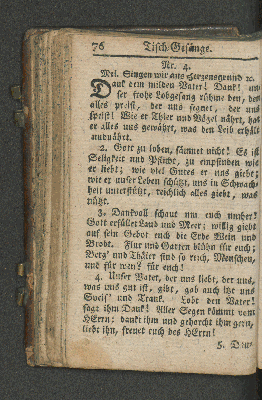 76 Tisch-Gesänge.
Nr. 4.
Mel. Singen wir aus Herzensgrund ꝛc.
Dank dem milden Vater! Dank! un-
ser frohe Lobgesang rühme den, den
alles preist, der uns segnet, der uns
speist! Wie er Thier und Vögel nährt, hat
er alles uns gewährt, was den Leib erhält
und nährt.
2. Gott zu loben, säumet nicht! Es ist
Seligkeit und Pflicht, zu empfinden wie
er liebt; wie viel Gutes er uns giebt;
wie er unser Leben schützt, uns in Schwach-
heit unterstützt, reichlich alles giebt, was
nützt.
3. Dankvoll schaut um euch umher!
Gott erfüllet Land und Meer; willig giebt
auf sein Gebot euch die Erde Wein und
Brodt. Flur und Garten blühn für euch;
Berg' und Thäler sind so reich, Menschen,
und für wen? für euch!
4. Unser Vater, der uns liebt, der uns,
was uns gut ist, gibt, gab auch itzt uns
Speis' und Trank. Lobt den Vater!
sagt ihm Dank! Aller Segen kömmt vom
HErrn; dankt ihm und gehorcht ihm gern,
liebt ihn, freuet euch des HErrn!